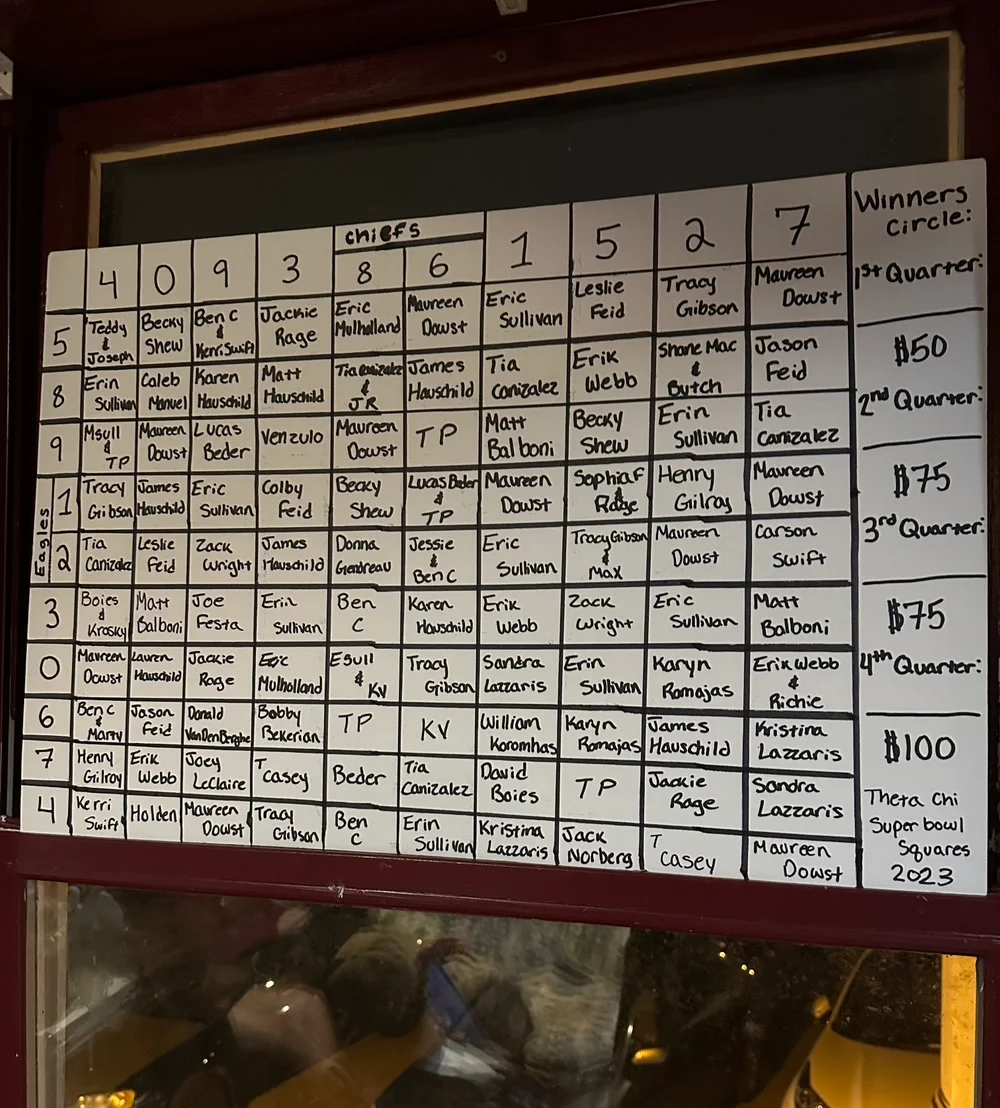 chiefs
4 0 9 3 8 6 1 5 2 7
Eagles
5 Teddy & Joseph Becky Shew Ben C & Kerri Swift Jackie Rage Eric Mulholland Maureen Dowst Eric Sullivan Leslie Feid Tracy Gibson Maureen Dowst
8 Erin Sullivan Caleb Manuel Karen Hauschild Matt Hauschild Tia Canizalez & JR James Hauschild Tia Canizalez Erik Webb Shane Mac & Butch Jason Feid
9 Msull & TP Maureen Dowst Lucas Beder Venzulo Maureen Dowst TP Matt Balboni Becky Shew Erin Sullivan Tia Canizalez
1 Tracy Gibson James Hauschild Eric Sullivan Colby Feid Becky Shew Lucas Beder & TP Maureen Dowst Sophia F & Rage Henry Gilroy Maureen Dowst
2 Tia Canizalez Leslie Feid Zack Wright James Hauschild Donna Gendreau Jessie & Ben C Eric Sullivan Tracy Gibson & Max Maureen Dowst Carson Swift
3 Boies & Krosky Matt Balboni Joe Festa Erin Sullivan Ben C Karen Hauschild Erik Webb Zack Wright Eric Sullivan Matt Balboni
0 Maureen Dowst Lauren Hauschild Jackie Rage Eric Mulholland Esull & KV Tracy Gibson Sandra Lazzaris Erin Sullivan Karyn Romajas Erik Webb & Richie
6 Ben C & Marry Jason Feid Donald VanDenBerghe Bobby Bekerian TP KV William Koromhas Karyn Romajas James Hauschild Kristina Lazzaris
7 Henry Gilroy Erik Webb Joey LeClaire T Casey Beder Tia Canizalez David Boies TP Jackie Rage Sandra Lazzaris
4 Kerri Swift Holden Maureen Dowst Tracy Gibson Ben C Erin Sullivan Kristina Lazzaris Jack Norberg T Casey Maureen Dowst
Winners
Circle:
1st Quarter:
$50
2nd Quarter:
$75
3rd Quarter:
$75
4th Quarter:
$100
Theta Chi
Super bowl
Squares
2023